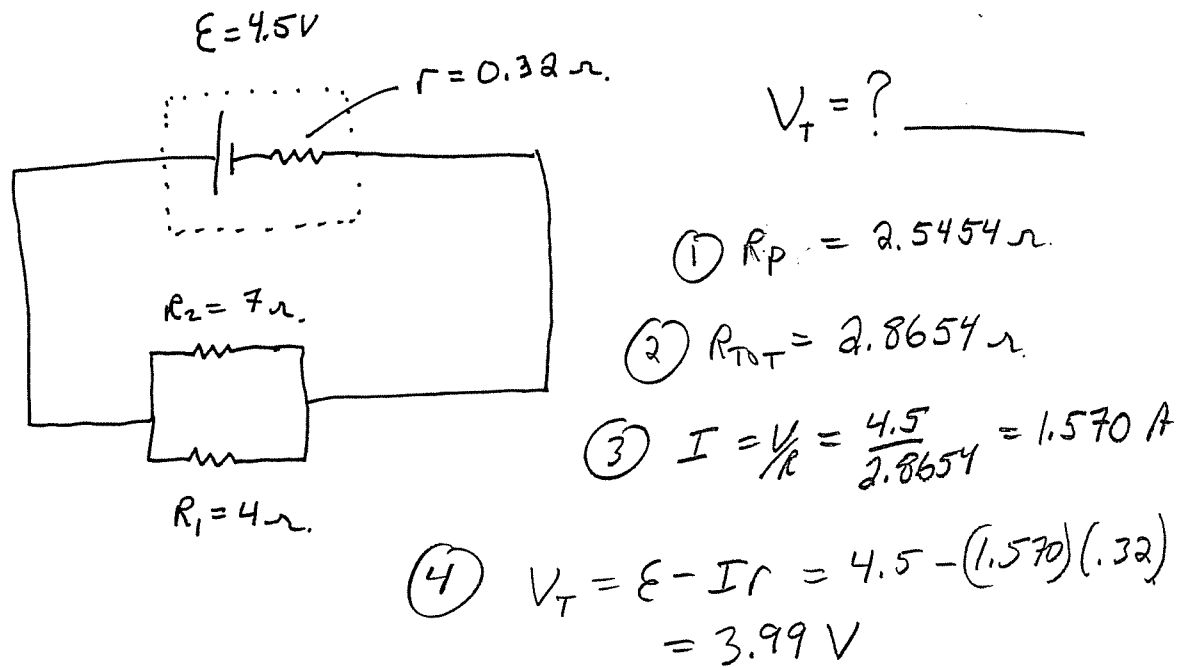 ε = 4.5V
r = 0.32 Ω.
V_T = ? ______
R₂ = 7 Ω.
R₁ = 4 Ω.
① R_P = 2.5454 Ω.
② R_TOT = 2.8654 Ω
③ I = V/R = 4.5/2.8654 = 1.570 A
④ V_T = ε - Ir = 4.5 - (1.570)(.32)
= 3.99 V